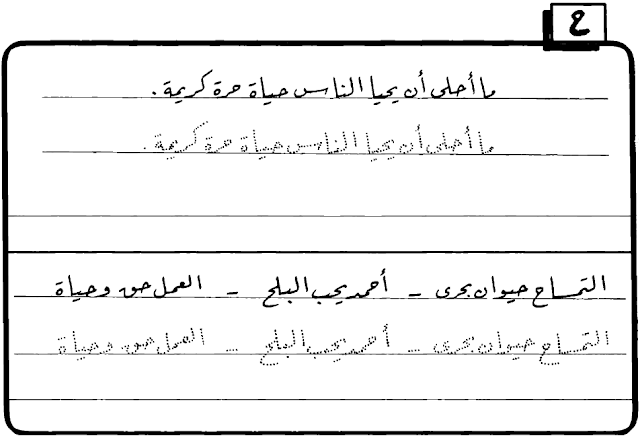 ح
ما أحلى أن يحيا الناس حياة حرة كريمة.
ما أحلى أن يحيا الناس حياة حرة كريمة.
التمساح حيوان بحرى - أحمد يحب البلح - العمل حق وحياة
التمساح حيوان بحرى - أحمد يحب البلح - العمل حق وحياة